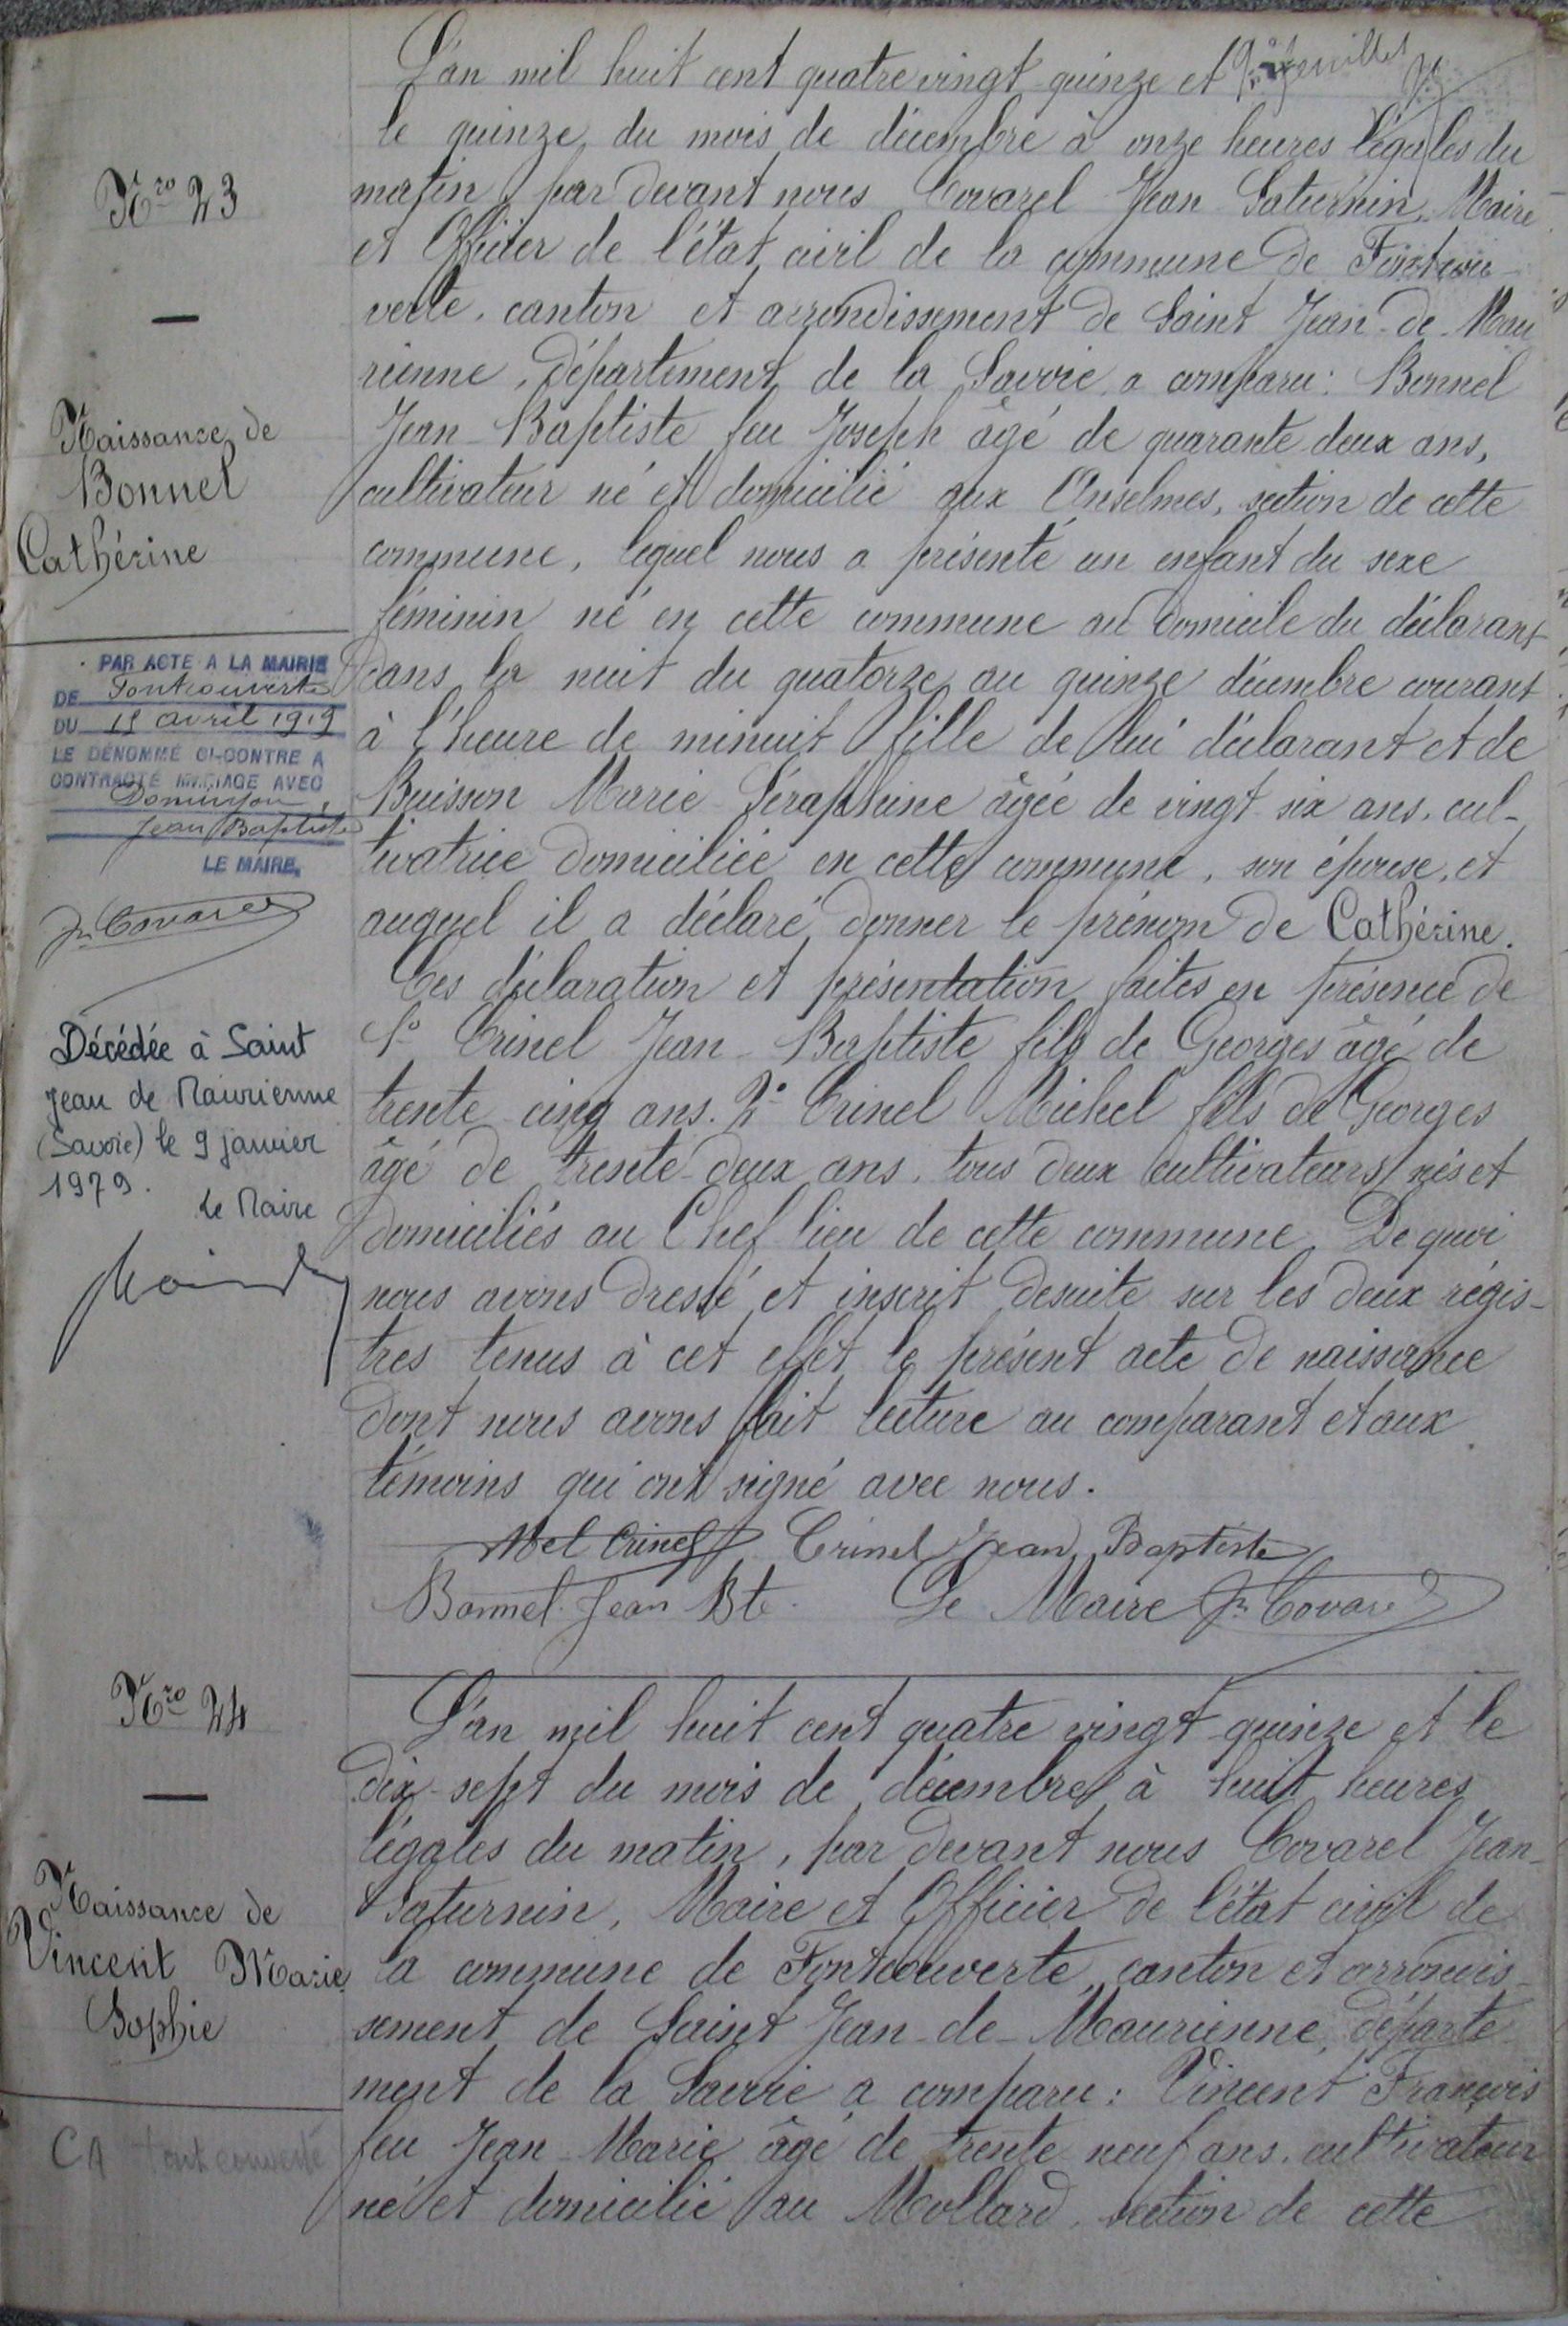 L'an mil huit cent quatre vingt quinze et 9e feuillet
le quinze du mois de décembre à onze heures légales du
matin, par devant nous Covarel Jean Saturnin, Maire
et Officier de l'état civil de la commune de Fontcou-
verte, canton et arrondissement de Saint Jean-de-Mau
rienne, département de la Savoie, a comparu: Bonnel
Jean-Baptiste feu Joseph âgé de quarante deux ans,
cultivateur né et domicilié aux Anselmes, section de cette
commune, lequel nous a présenté un enfant du sexe
féminin né en cette commune au domicile du déclarant
dans la nuit du quatorze au quinze décembre courant
à l'heure de minuit fille de lui déclarant et de
Buisson Marie-Séraphine âgée de vingt six ans, cul-
tivatrice domiciliée en cette commune, son épouse, et
auquel il a déclaré donner le prénom de Cathérine.
Ces déclaration et présentation faites en présence de
1° Crinel Jean-Baptiste fils de Georges âgé de
trente-cinq ans. 2° Crinel Michel fils de Georges
âgé de trente-deux ans, tous deux cultivateurs nés et
domiciliés au Chef lieu de cette commune. De quoi
nous avons dressé et inscrit desuite sur les deux régis-
tres tenus à cet effet le présent acte de naissance
dont nous avons fait lecture au comparant et aux
témoins qui ont signé avec nous.
Mel Crinel Crinel Jean Baptiste
Bonnel Jean Bte. Le Maire Jn Covarel
Nro 23
—
Naissance de
Bonnel
Cathérine
PAR ACTE A LA MAIRIE
DE Fontcouverte
DU 15 avril 1919
LE DÉNOMMÉ CI-CONTRE A
CONTRACTÉ MARIAGE AVEC
Dominjon
Jean Baptiste
LE MAIRE,
Jn Covarel
Décédée à Saint
Jean de Maurienne
(Savoie) le 9 janvier
1979.
Le Maire
Nro 24
—
Naissance de
Vincent Marie
Sophie
CA Fontcouverte
L'an mil huit cent quatre vingt-quinze et le
dix-sept du mois de décembre à huit heures
légales du matin, par devant nous Covarel Jean-
Saturnin, Maire et Officier de l'état civil de
la commune de Fontcouverte, canton et arrondis-
sement de Saint Jean-de-Maurienne, départe-
ment de la Savoie a comparu: Vincent François
feu Jean-Marie âgé de trente neuf ans, cultivateur
né et domicilié au Mollard, section de cette